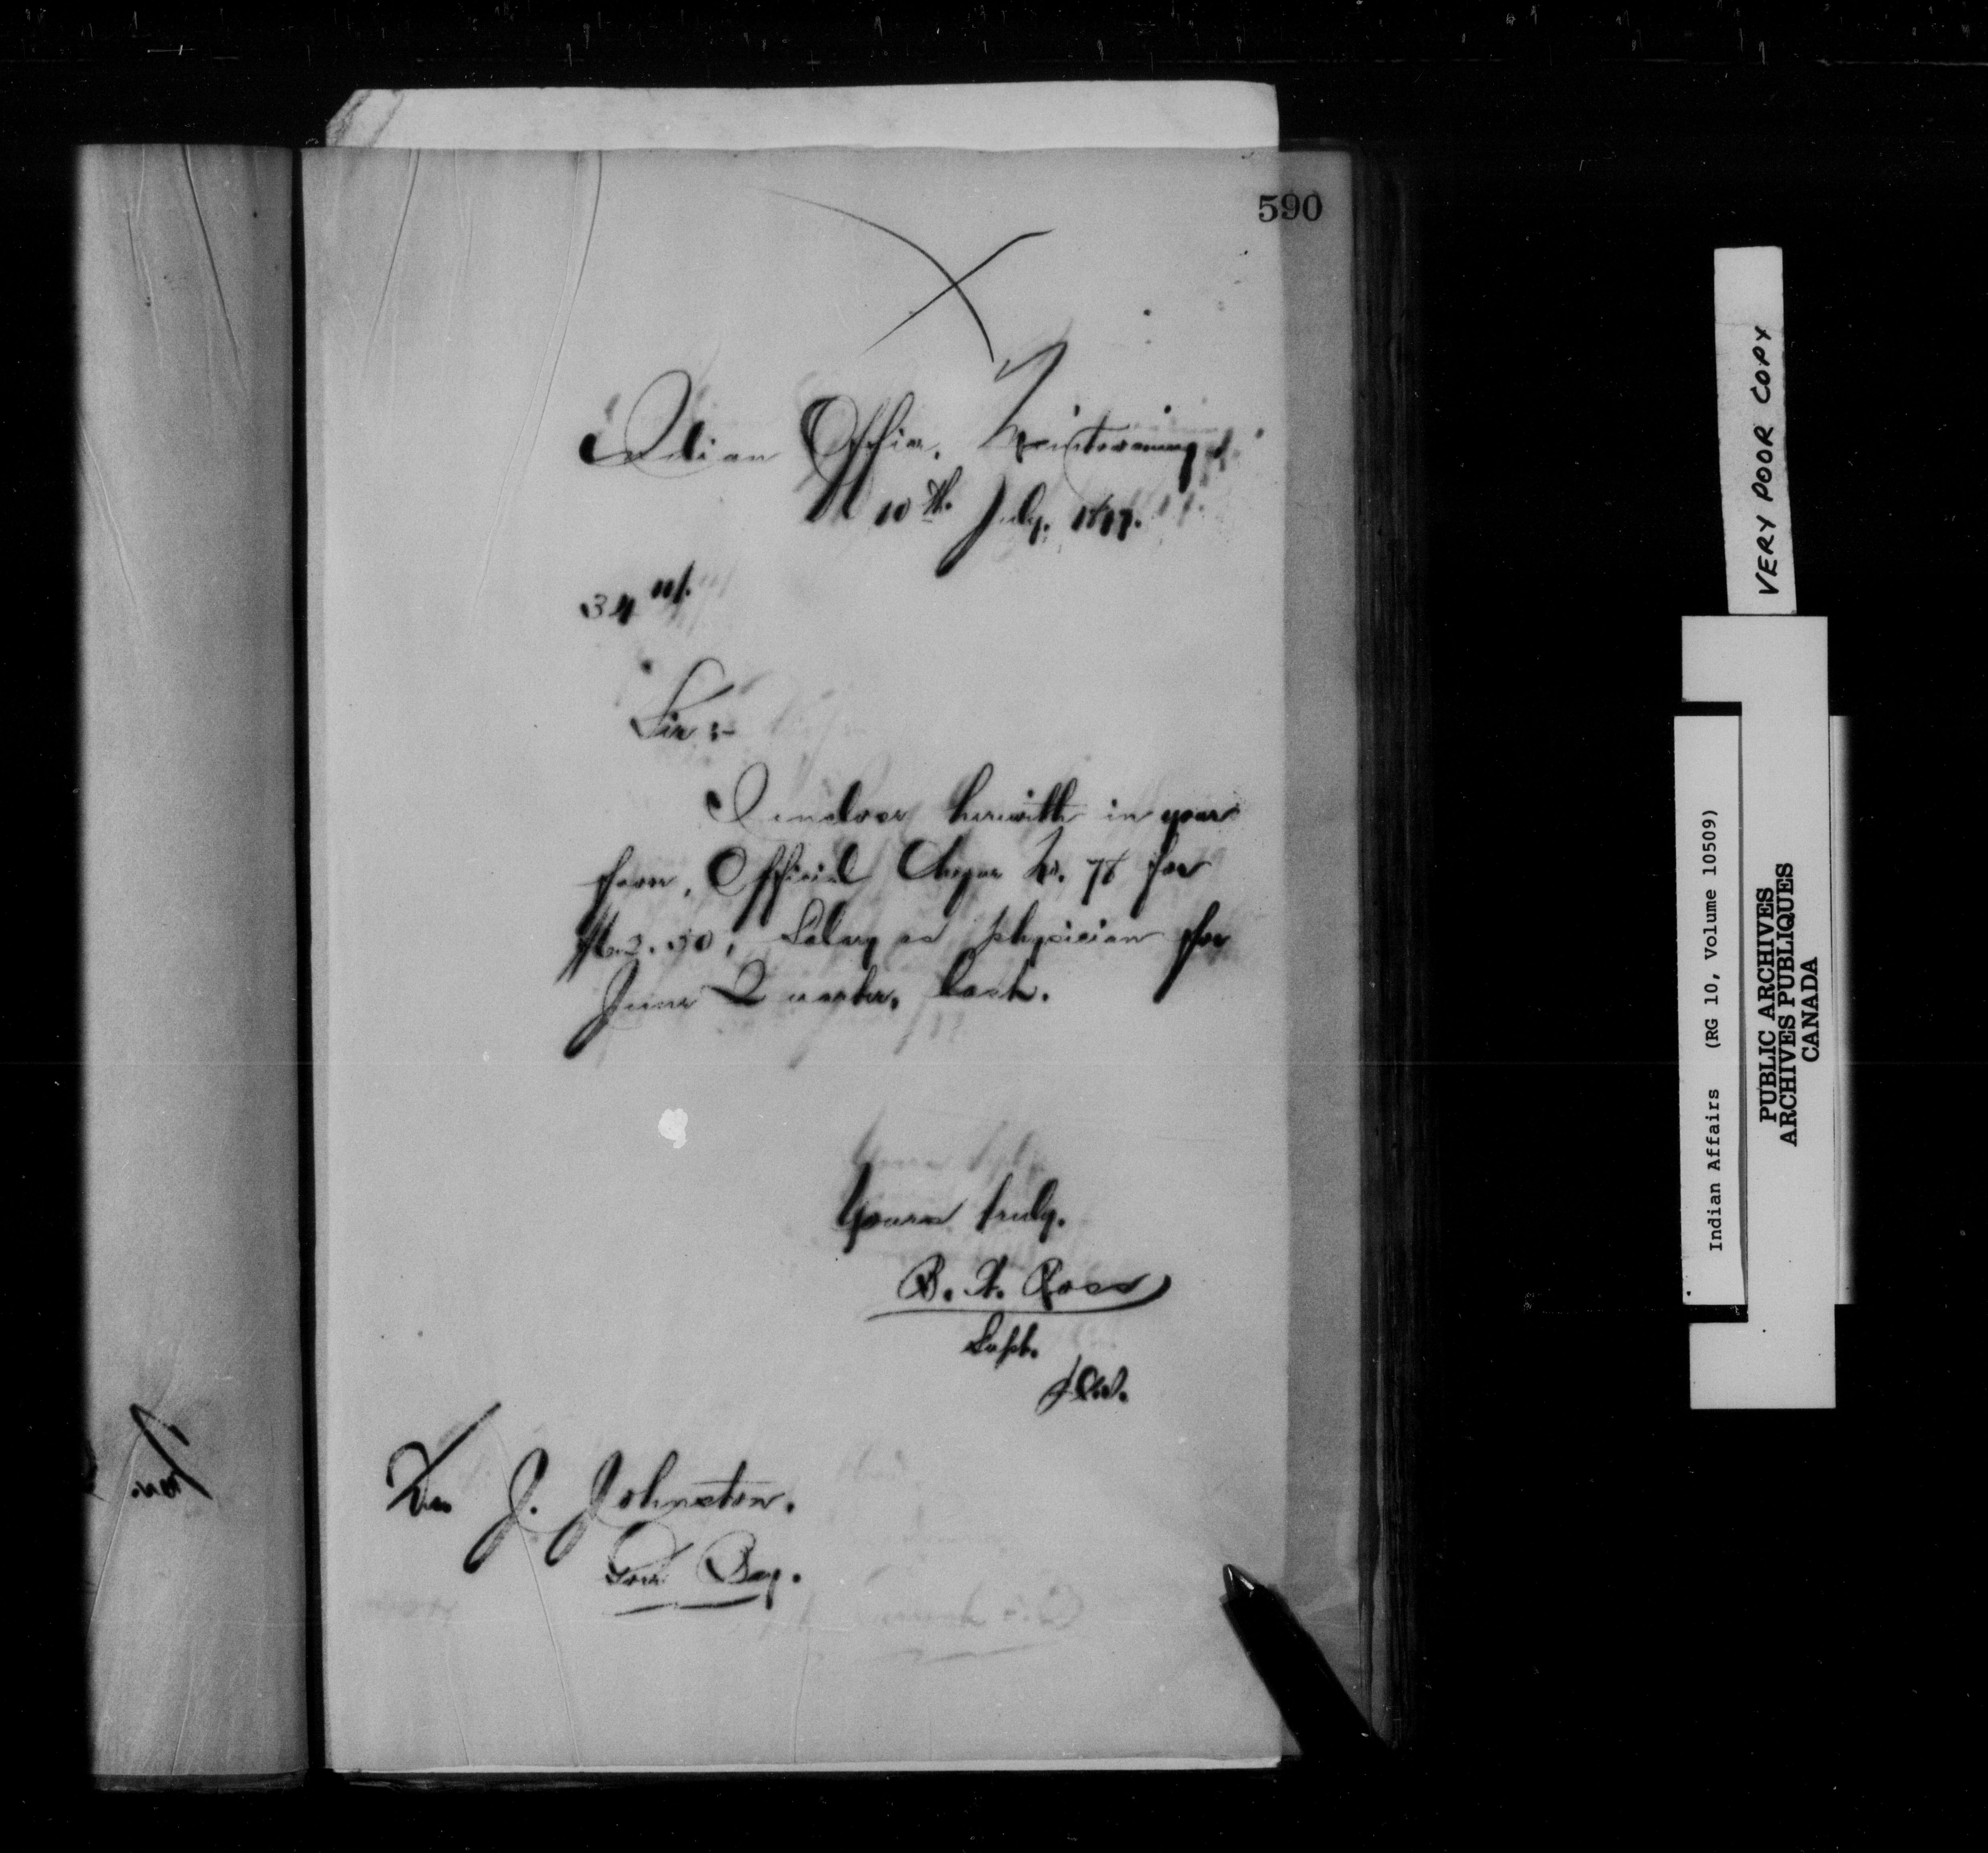 590
Indian Office, Manitowaning
10th July, 1897.
Sir :-
I enclose herewith in your
favor, Official Cheque No. 78 for
Salary as physician for
June Quarter, last.
Yours truly,
B. W. Ross
Supt.
Dr. J. Johnston.
Gore Bay.
VERY POOR COPY
Indian Affairs (RG 10, Volume 10509)
PUBLIC ARCHIVES
ARCHIVES PUBLIQUES
CANADA